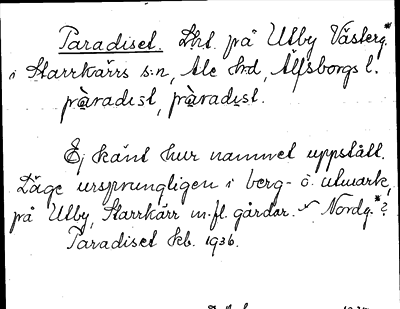 Paradiset. Lht. på Utby Västerg.*
i Starrkärrs s:n, Ale hd, Älfsborgs l.
pàradist, pàradist.
Ej känt hur namnet uppstått.
Läge ursprungligen i berg- o. utmark,
på Utby, Starrkärr m.fl. gårdar. Nordg.*?
Paradiset kb. 1936.